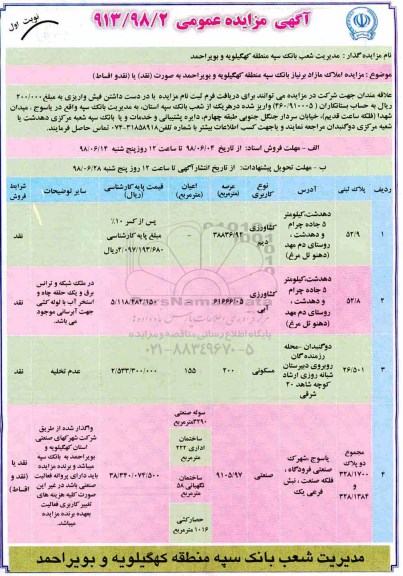 نوبت اول
آگهی مزایده عمومی ۹۱۳/۹۸/۲
نام مزایده گذار : مدیریت شعب بانک سپه منطقه کهگیلویه و بویراحمد
موضوع : مزایده املاک مازاد برنیاز بانک سپه منطقه کهگیلویه و بویراحمد به صورت (نقد) یا (نقدو اقساط)
علاقه مندان جهت شرکت در مزایده می توانند برای دریافت فرم ثبت نام مزایده با در دست داشتن فیش واریزی به مبلغ ۲۰۰/۰۰۰
ریال به حساب بستانکاران (۴۶۰/۹۱۰۰۰۵) واریز شده درهریک از شعب بانک سپه استان، به مدیریت بانک سپه واقع در یاسوج ، میدان
شهدا (فلکه ساعت قدیم)، خیابان سردار جنگل جنوبی طبقه چهارم، دایره پشتیبانی و خدمات و یا بانک سپه شعبه مرکزی دهدشت یا
شعبه مرکزی دوگنبدان مراجعه نمایند و یاجهت کسب اطلاعات بیشتر با شماره تلفن ۰۷۴-۳۱۸۵۸۹۱۸ تماس حاصل فرمایند.
الف - مهلت فروش اسناد: از تاریخ ۹۸/۰۶/۰۴ تا ساعت ۱۲ روز پنج شنبه ۹۸/۰۶/۱۴
ب - مهلت تحویل پیشنهادات: از تاریخ انتشارآگهی تا ساعت ۱۲ روز پنج شنبه ۹۸/۰۶/۲۸
ردیف پلاک ثبتی آدرس نوع کاربری عرصه (مترمربع) اعیان (مترمربع) قیمت پایه کارشناسی (ریال) سایر توضیحات شرایط فروش
۱ ۵۲/۹ دهدشت،کیلومتر ۵ جاده چرام و دهدشت ، روستای دم مهد (دهنو تل مرغ) کشاورزی دیم ۳۸۸۳۶/۹۴ - پس از کسر ۱۰٪ مبلغ پایه کارشناسی ۲/۰۹۷/۱۹۳/۶۸۰ریال نقد
۲ ۵۲/۸ دهدشت،کیلومتر ۵ جاده چرام و دهدشت ، روستای دم مهد (دهنو تل مرغ) کشاورزی آبی ۶۱۶۶۶/۰۵ ۵/۱۱۸/۴۸۲/۱۵۰ در ملک شبکه و ترانس برق و یک حلقه چاه و استخر آب با لوله کشی جهت آبرسانی موجود می باشد. نقد
۳ ۲۶/۵۰۱ دوگنبدان -محله رزمندگان روبروی دبیرستان شبانه روزی ارشاد کوچه شاهد ۲۰ شرقی مسکونی ۲۰۰ ۱۵۵ ۲/۵۳۳/۳۰۰/۰۰۰ عدم تخلیه نقد
۴ مجموع دو پلاک ۳۲۸/۱۷۰۰ و ۳۲۸/۱۳۸۴ یاسوج ،شهرک صنعتی فرودگاه ، فلکه صنعت ، نبش فرعی یک صنعتی ۹۱۰۵/۹۷ سوله صنعتی ۳۲۹۰مترمربع ساختمان اداری ۲۲۲ مترمربع ساختمان نگهبانی ۵۸ مترمربع حصارکشی ۱۰۱۶ مترمربع ۳۸/۳۴۰/۰۷۴/۵۰۰ واگذار شده از طریق شرکت شهرکهای صنعتی استان کهگیلویه و بویراحمد به بانک سپه میباشد و برنده مزایده باید دارای پروانه فعالیت صنعتی باشد در غیر این صورت کلیه هزینه های تغییر کاربری فعالیت بعهده برنده مزایده میباشد. نقد یا (نقد و اقساط)
پایگاه اطلاع رسانی مناقصه و مزایده
۰۲۱-۸۸۳۴۹۶۷۰-۵
مدیریت شعب بانک سپه منطقه کهگیلویه و بویراحمد